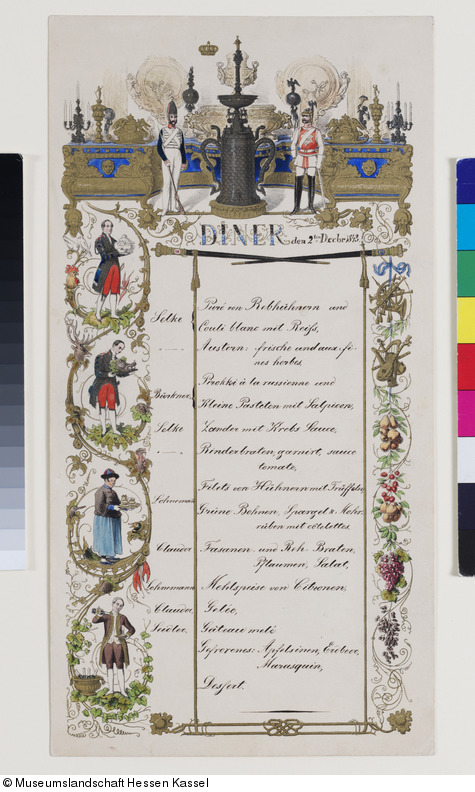 DINER den 2ten Decbr 1853.
Selke Püré von Rebhühnern und
Couli blanc mit Reiß,
Austern: frische und aux fi-
nes herbes,
Pirokki à la russienne und
Bürkner Kleine Pasteten mit Salpicon,
Selke Zander mit Krebs Sauce,
Rinderbraten, garnirt, sauce
tomate,
Filets von Hühnern mit Trüffeln,
Lehnsmann Grüne Bohnen, Spargel & Mohr-
rüben mit côtelettes
Clauder Fasanen- und Reh-Braten,
Pflaumen, Salat,
Lehnsmann Mehlspeise von Citronen,
Clauder Gelée,
Gâteau melé
Gefrorenes: Apfelsinen, Erdbeer,
Marasquin,
Dessert.
© Museumslandschaft Hessen Kassel